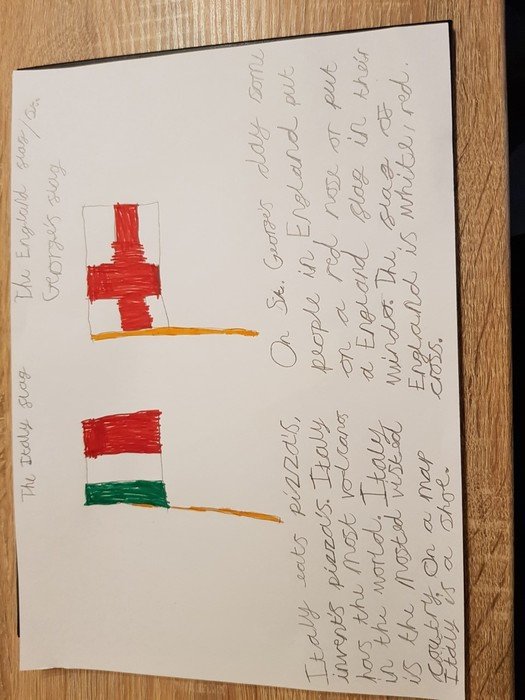 The Italy flag
Italy eats pizza's,
invents pizza's. Italy
has the most volcanos
in the world. Italy
is the mosted visted
coutry. On a map
Italy is a shoe.
The England flag/St.
Georges flag
On St. Georges day some
people in England put
on a red nose or put
a England flag in their
windo. The flag of
England is white, red.
cross.